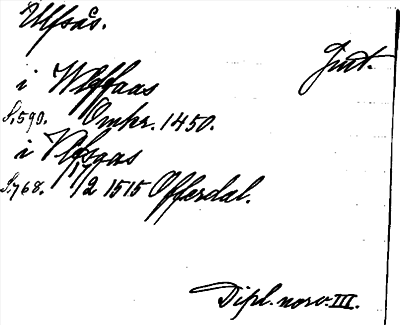 Ulfsås.
Jmt.
i Wlffaas
S. 590. Omkr. 1450.
i Vlfsaas
S. 768. 17/2 1515 Offerdal.
Dipl. norv. III.